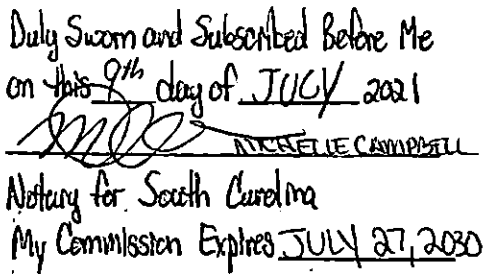 Duly Sworn and Subscribed Before Me
on this 9th day of JULY 2021
MICHELLE CAMPBELL
Notary for South Carolina
My Commission Expires JULY 27, 2030